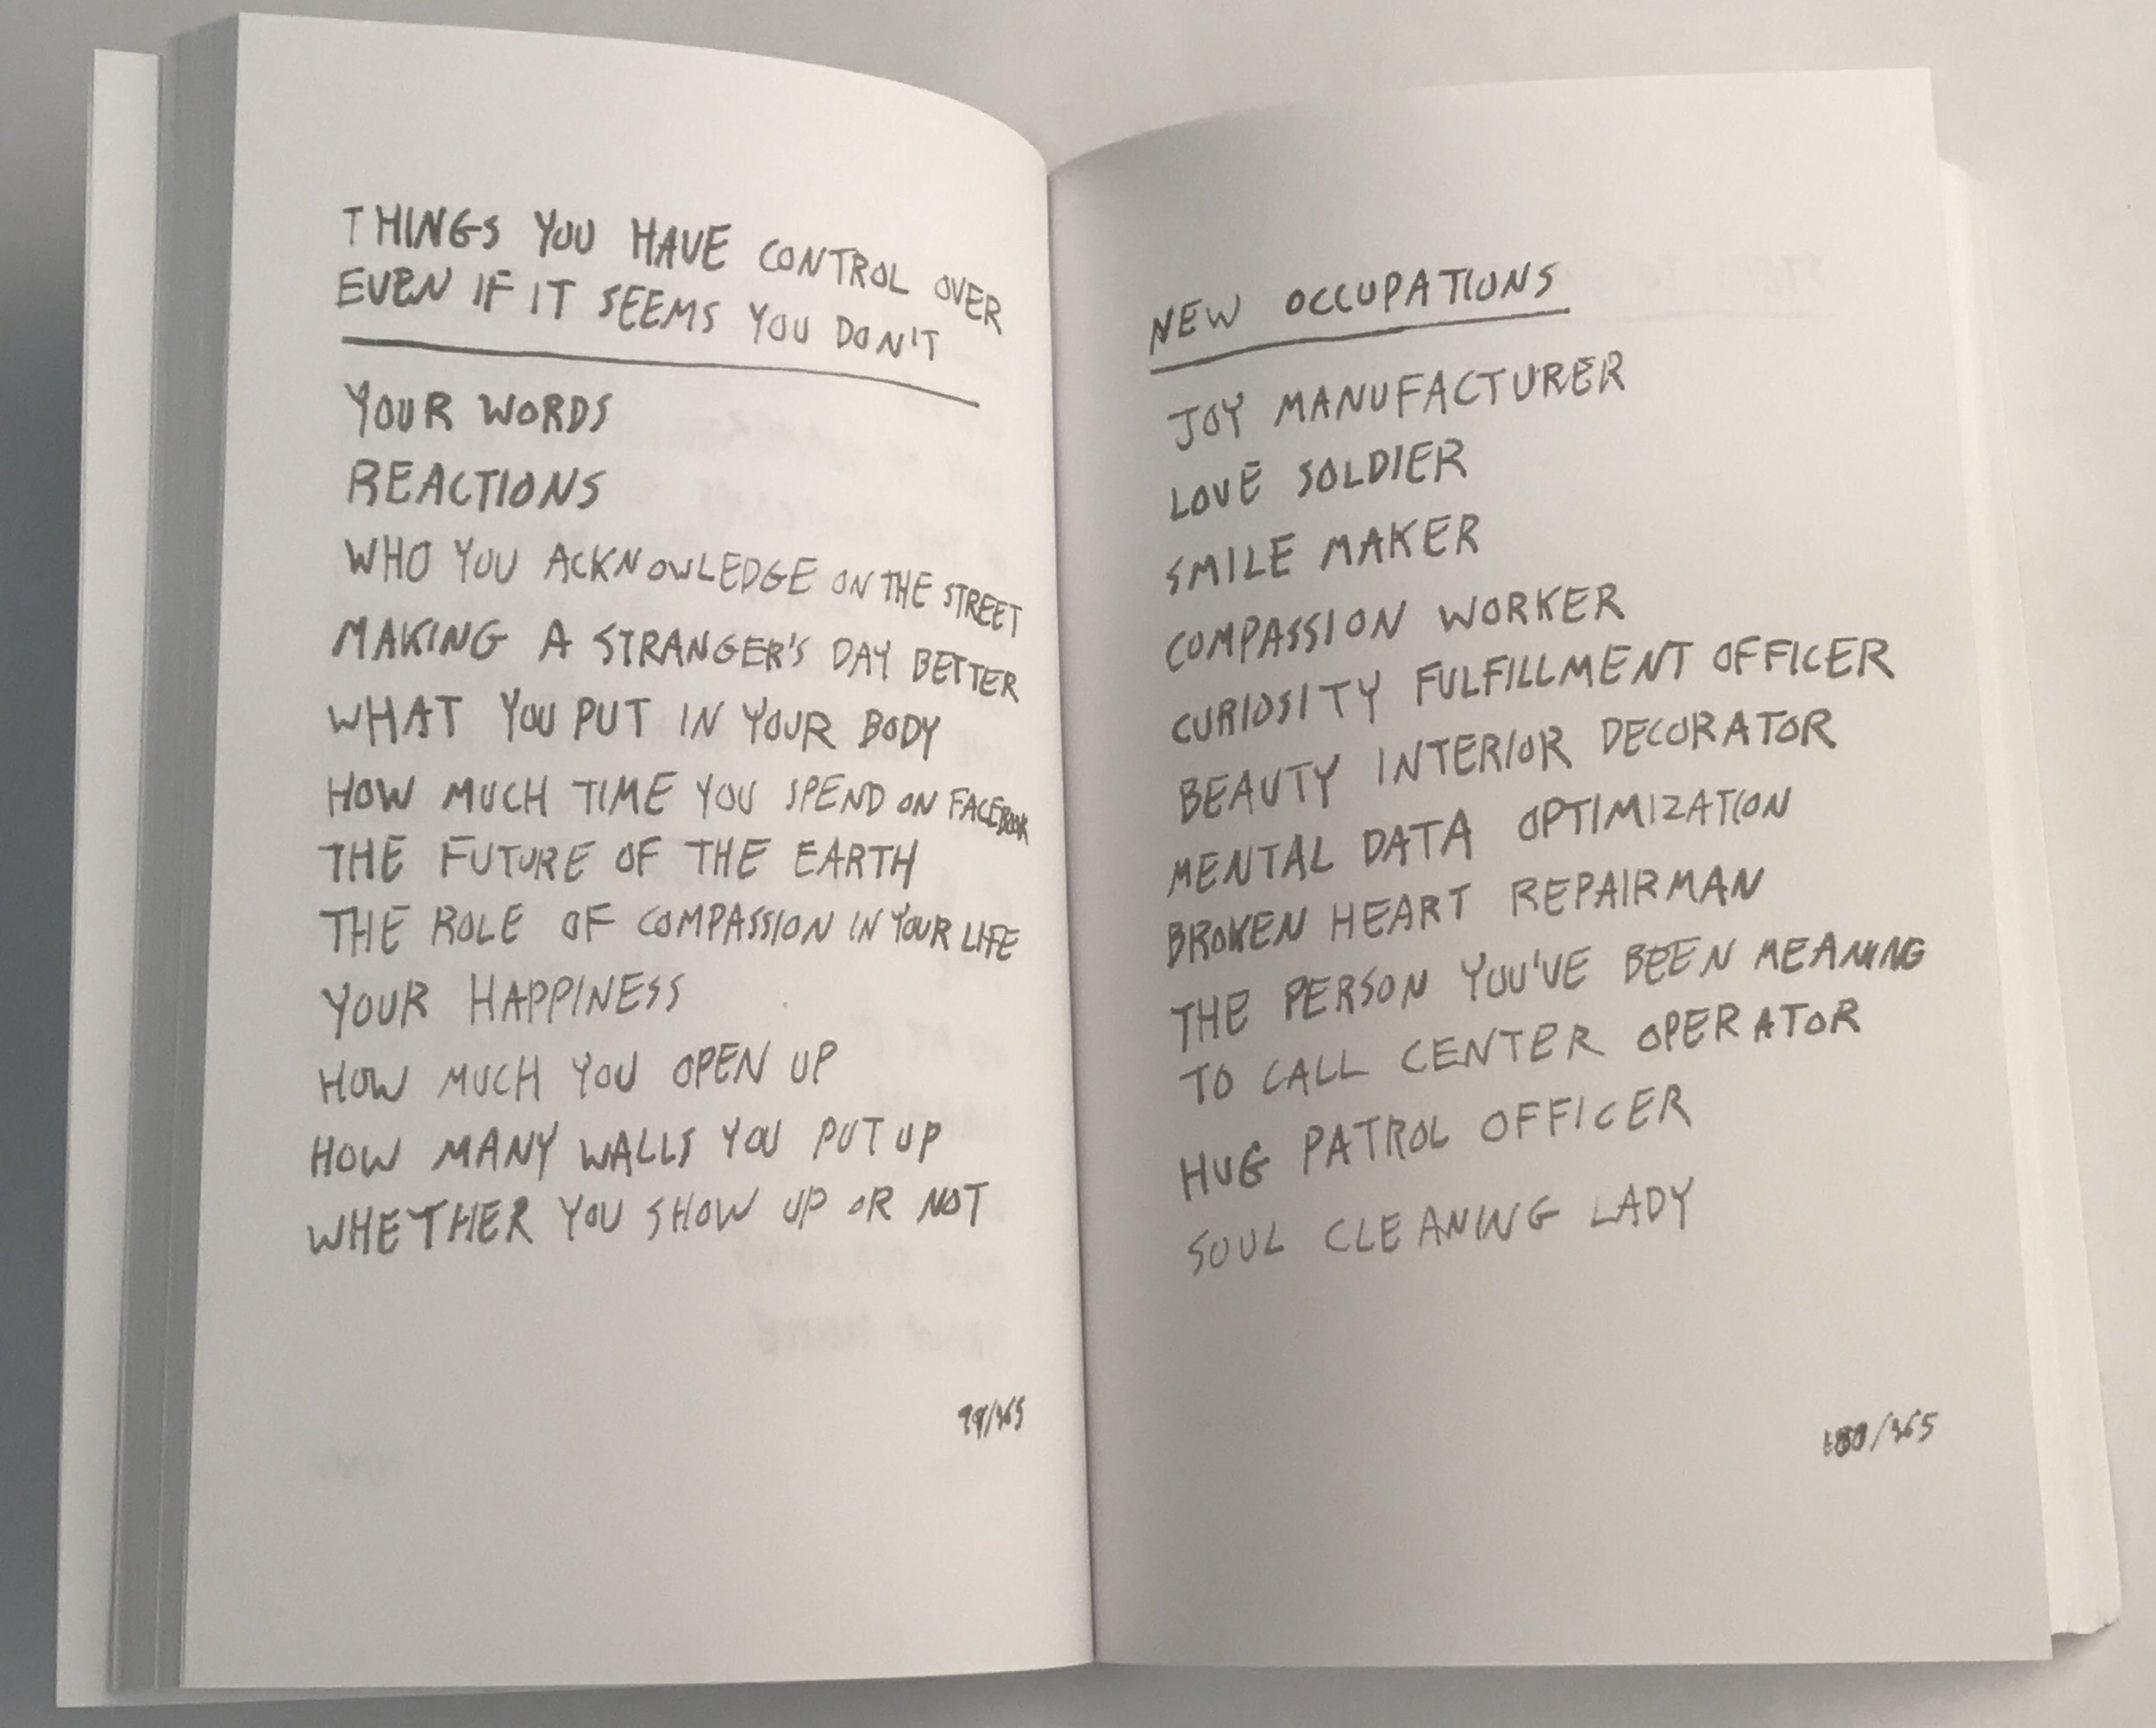 THINGS YOU HAVE CONTROL OVER
EVEN IF IT SEEMS YOU DON'T
YOUR WORDS
REACTIONS
WHO YOU ACKNOWLEDGE ON THE STREET
MAKING A STRANGER'S DAY BETTER
WHAT YOU PUT IN YOUR BODY
HOW MUCH TIME YOU SPEND ON FACEBOOK
THE FUTURE OF THE EARTH
THE ROLE OF COMPASSION IN YOUR LIFE
YOUR HAPPINESS
HOW MUCH YOU OPEN UP
HOW MANY WALLS YOU PUT UP
WHETHER YOU SHOW UP OR NOT
99/365
NEW OCCUPATIONS
JOY MANUFACTURER
LOVE SOLDIER
SMILE MAKER
COMPASSION WORKER
CURIOSITY FULFILLMENT OFFICER
BEAUTY INTERIOR DECORATOR
MENTAL DATA OPTIMIZATION
BROKEN HEART REPAIRMAN
THE PERSON YOU'VE BEEN MEANING
TO CALL CENTER OPERATOR
HUG PATROL OFFICER
SOUL CLEANING LADY
100/365